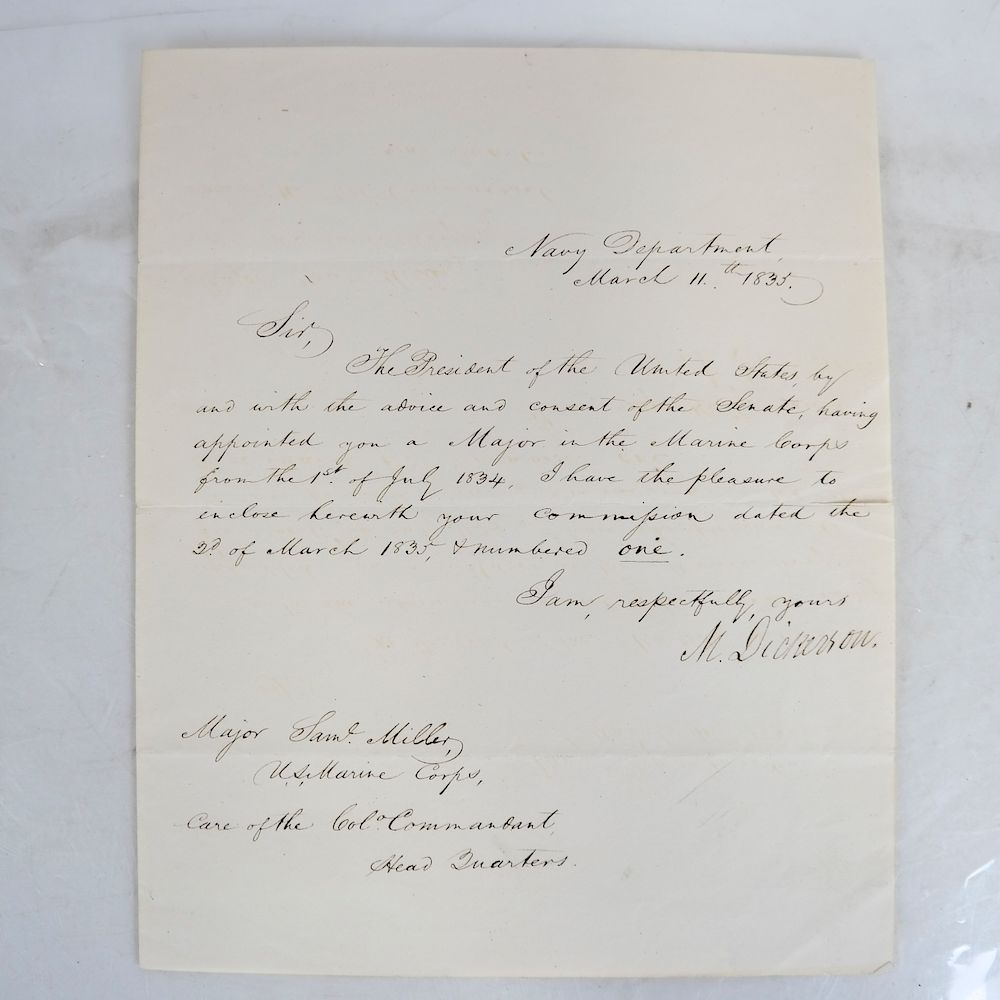 Navy Department,
March 11.th 1835.
Sir,
The President of the United States, by
and with the advice and consent of the Senate, having
appointed you a Major in the Marine Corps
from the 1st. of July 1834, I have the pleasure to
inclose herewith your commission dated the
3d. of March 1835, & numbered one.
I am, respectfully, yours
M. Dickerson.
Major Saml. Miller,
U.S. Marine Corps,
Care of the Colo. Commandant,
Head Quarters.